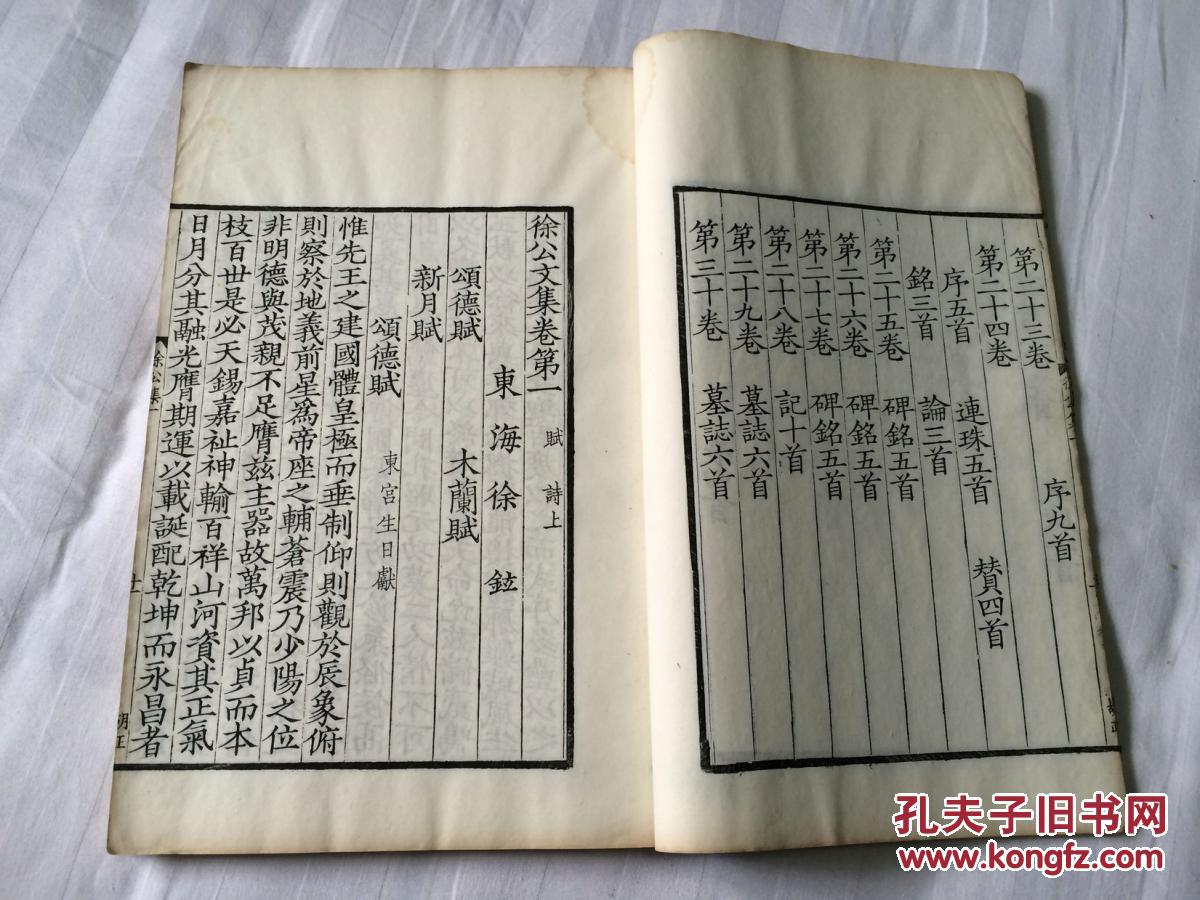 第二十三卷 序九首
第二十四卷
序五首 連珠五首 贊四首
銘三首 論三首
第二十五卷 碑銘五首
第二十六卷 碑銘五首
第二十七卷 碑銘五首
第二十八卷 記十首
第二十九卷 墓誌六首
第三十卷 墓誌六首
徐公文集卷第一 賦 詩上
東海徐鉉
頌德賦 木蘭賦
新月賦
頌德賦 東宮生日獻
惟先王之建國體皇極而垂制仰則觀於辰象俯
則察於地義前星爲帝座之輔蒼震乃少陽之位
非明德與茂親不足膺兹主器故萬邦以貞而本
枝百世是必天錫嘉祉神輸百祥山河資其正氣
日月分其融光膺期運以載誕配乾坤而永昌者
徐公集一
十一
孔夫子旧书网
www.kongfz.com